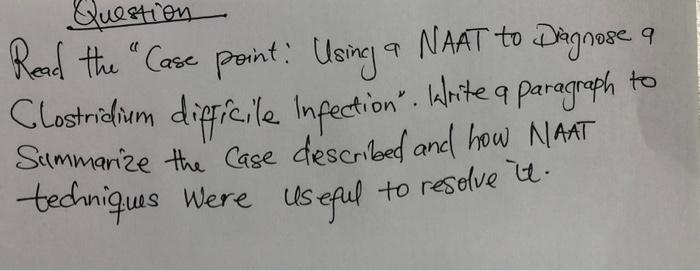 Question
Read the "Case point: Using a NAAT to Diagnose a
Clostridium difficile Infection". Write a paragraph to
Summarize the Case described and how NAAT
techniques were useful to resolve it.